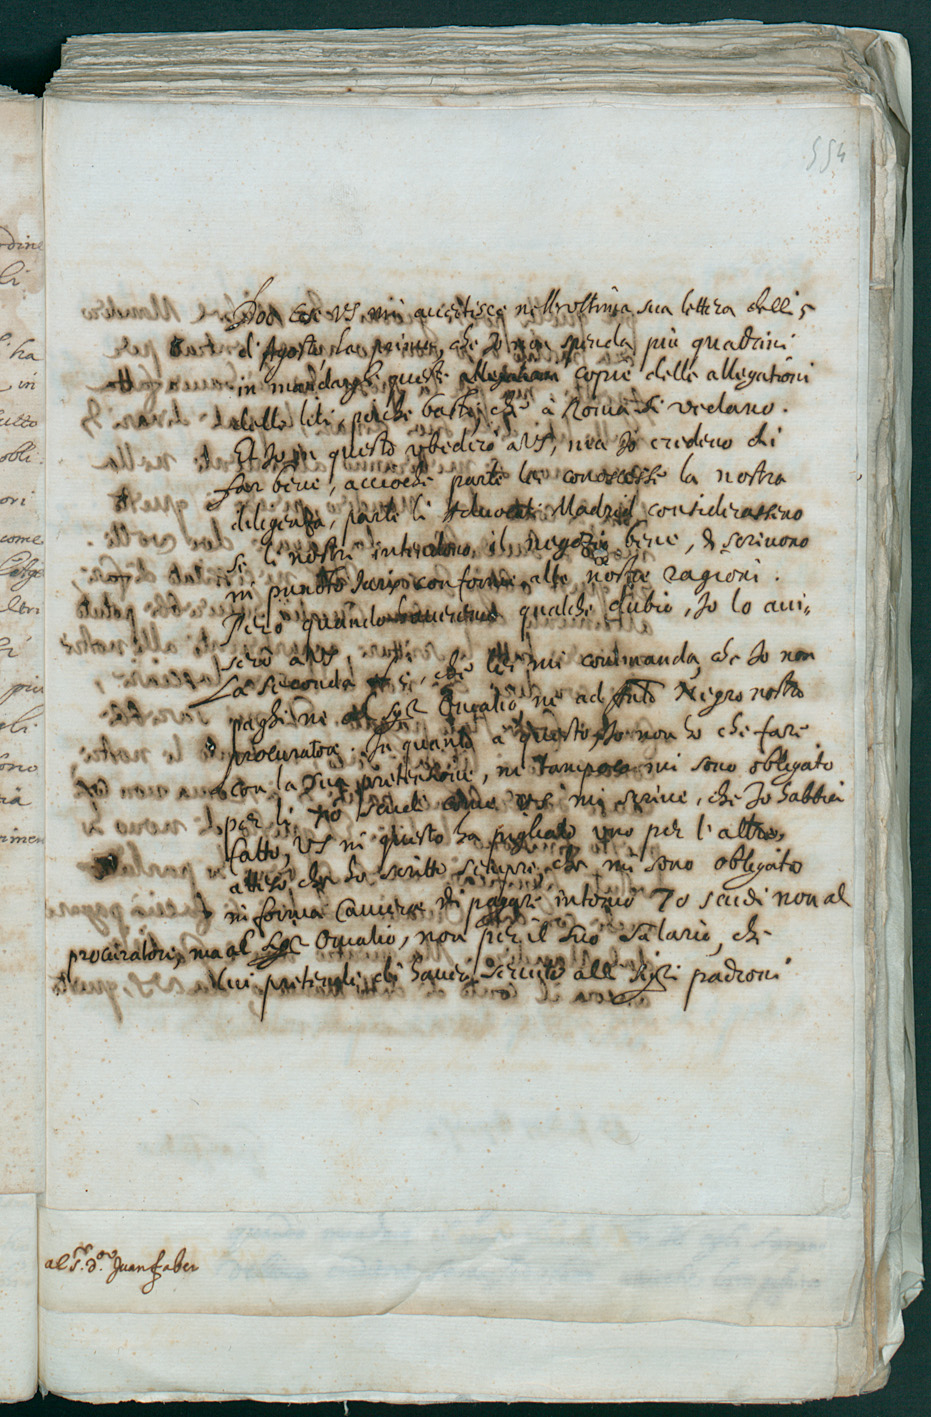 554
Due cose VS mi avertisce nell'ultima sua lettera delli 5
d'Agosto, La prima, che Io non spenda più quattrini
in mandargli queste copie delle allegationi
delle liti, perche basta, che à Roma si vedano.
Et Io in questo ubedirò a VS, ma Io credevo di
far bene, acciochè parte lei conoscesse la nostra
diligenza, parte li Madrid considerassero
se li nostri intendono il negozio bene, & scrivono
in puncto Juris conforme alle nostre ragioni.
Però quando qualche dubio, Io lo avi-
serò a VS.
La seconda è, che lei mi commanda, che Io non
paghi ne al Sigr Omalio, ne ad Negro nostro
procuratore. In quanto a questo Io non ho che fare
con la sua pretensione, ne tampoco mi sono obligato
per li 70 scudi come VS mi scrive, che Io habbia
fatto, VS in questo ha pigliato uno per l'altro,
che ho scritto sempre, che mi sono obligato
in forma Camerae di pagare intorno 70 scudi non al
procuratore, ma al Sigr Omalio, non per il suo salario, che
lui pretende di haver servito alli Sigri padroni
al Sr. Dor. Juan faber